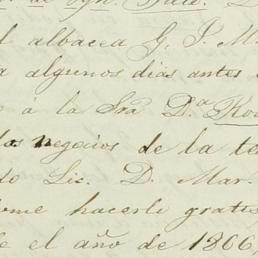 de Dn.
l albacea G. J. M.
a algunos dias antes
o á la Sra Da Ro
los negocios de la te
do Lic. D. Mar.
ome hacerle gratis
e el año de 1866,